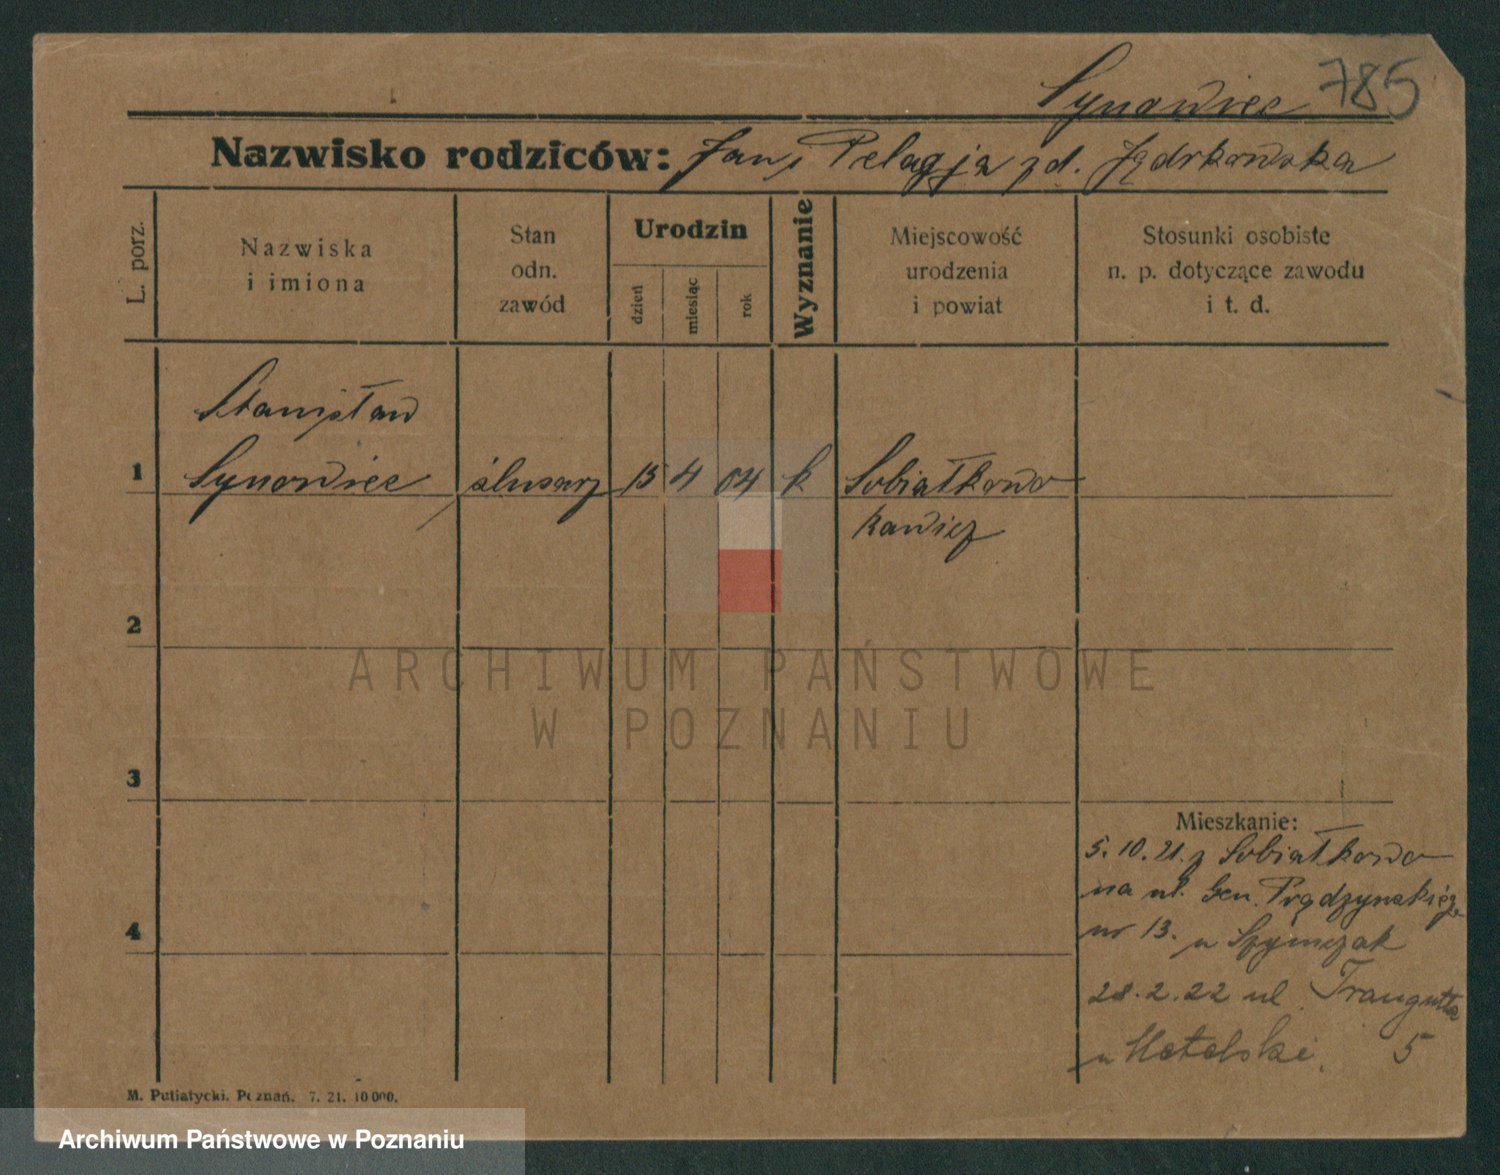 Synowiec 785
Nazwisko rodziców: Jan i Pelagja zd. Jądrkowska
L. porz.
Nazwiska
i imiona
Stan
odn.
zawód
Urodzin
dzień
miesiąc
rok
Wyznanie
Miejscowość
urodzenia
i powiat
Stosunki osobiste
n. p. dotyczące zawodu
i t. d.
Stanisław
1 Synowiec ślusarz 15 4 04 k Sobiałkowo
Rawicz
2
ARCHIWUM PAŃSTWOWE
W POZNANIU
3
Mieszkanie:
5.10.21. z Sobiałkowo
na ul. Gen. Prądzyńskiego
4
nr 13. u Szymczak
28.2.22 ul. Traugutta
u Matelski. 5
M. Putiatycki. Poznań. 7. 21. 10 000.
Archiwum Państwowe w Poznaniu